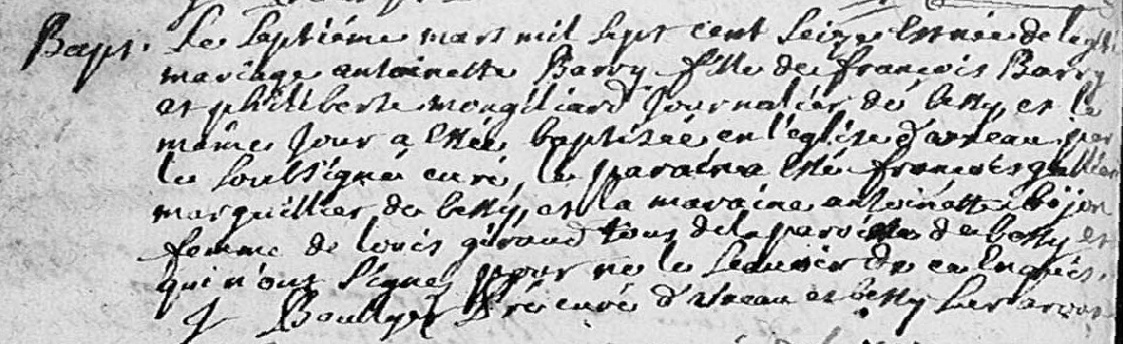 Bapt. Le Septiéme mars mil Sept cent Seize Est née de legit
mariage antoinette Barry fille de françois Barry
et philiberte mongilliard Journalier de betty, et le
même Jour a Esté baptisée en l'eglise d' par
le Soubsigné curé, le paraina Esté françois
marguillier de betty, et la maraine antoinette bijon
femme de louis giraud tous de la paroisse de betty et
qui n'ont Signez pour ne le Scauoir de ce Enquis.
J Boulyer curé d' et betty